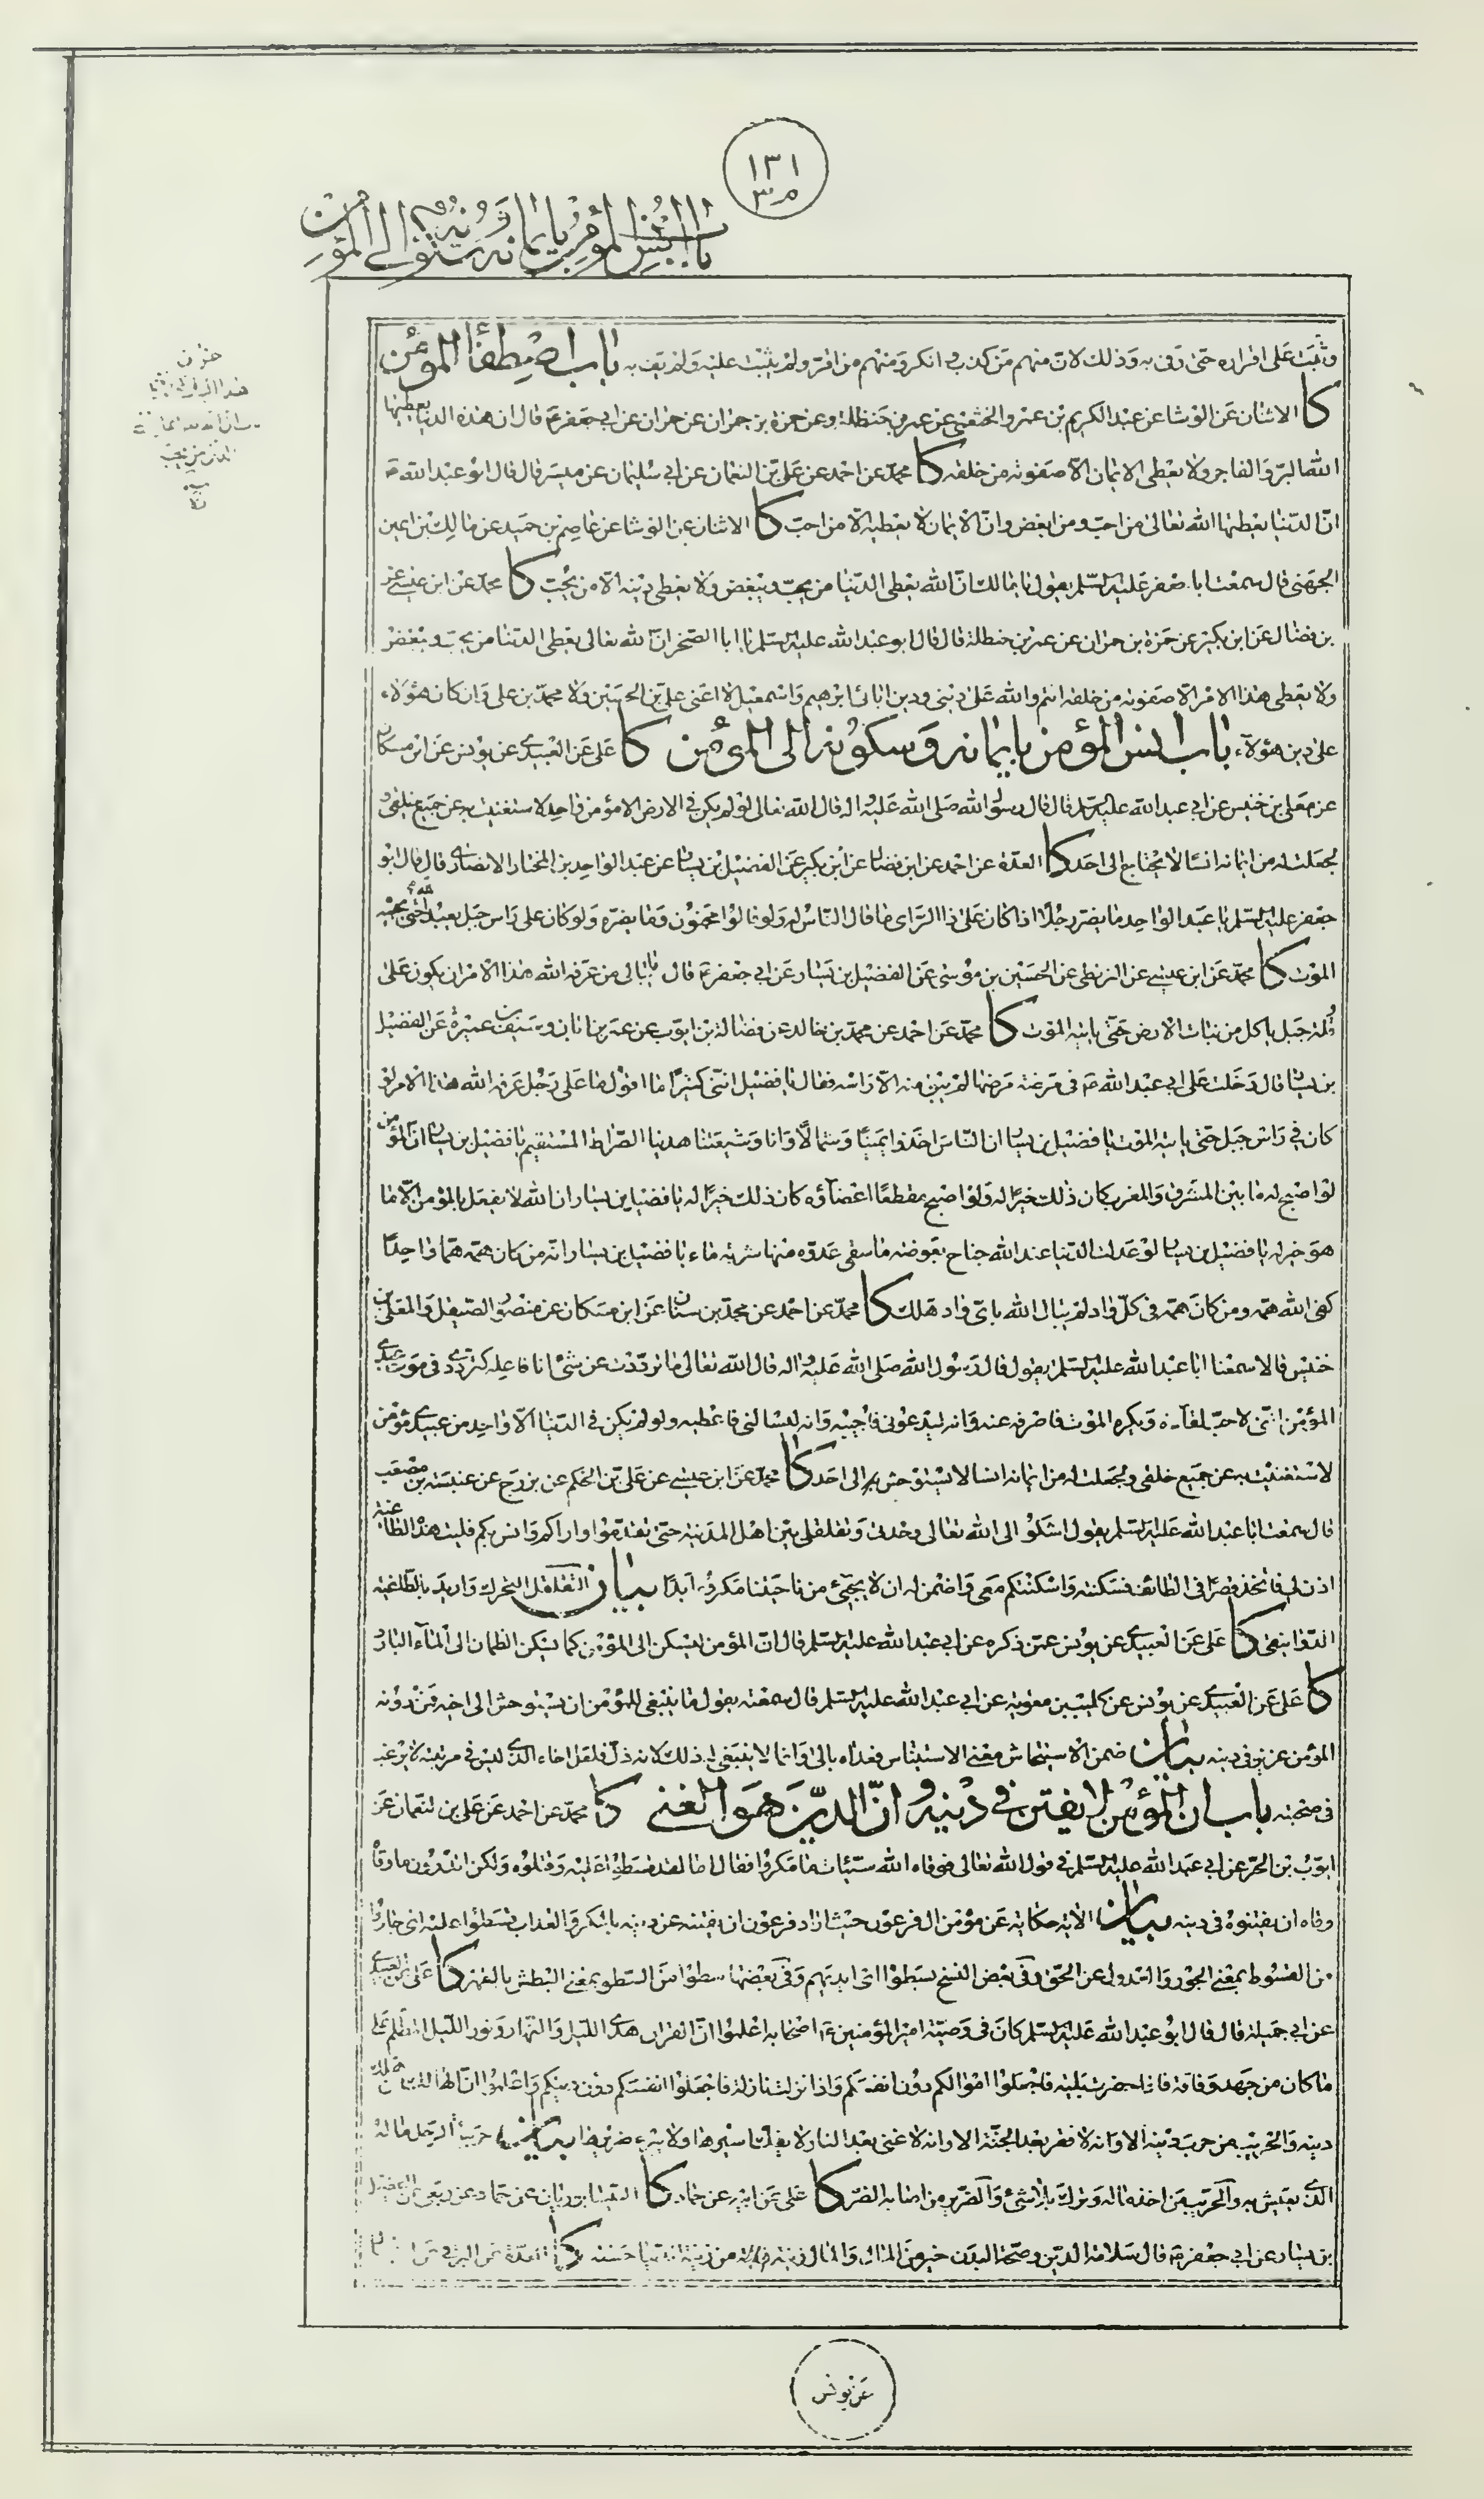 ١٣١
باب انس المؤمن بايمانه وسكونه الى المؤمن
وثبت على اقراره حتى وفى به وذلك لان منهم من كذب و انكر ومنهم من اقر ولم يثبت عليه ولم يف به باب اصطفاء المؤمن
كا الاثنان عن الوشا عن عبد الكريم بن عمرو الخثعمى عن عمر بن حنظلة وعن حمزة بن حمران عن حمران عن ابى جعفر ع قال ان هذه الدنيا يعطيها
الله البر و الفاجر ولا يعطى الايمان الا صفوته من خلقه كا محمد عن احمد عن على بن النعمان عن ابى سليمان عن ميسر قال قال ابو عبد الله ع
ان الدنيا يعطيها الله تعالى من احب ومن ابغض وان الايمان لا يعطيه الا من احب كا الاثنان عن الوشا عن عاصم بن حميد عن مالك بن اعين
الجهنى قال سمعت ابا جعفر عليه السلم يقول يا مالك ان الله يعطى الدنيا من يحب و يبغض ولا يعطى دينه الا من يحب كا محمد عن ابن عيسى عن
بن فضال عن ابن بكير عن حمزة بن حمران عن عمر بن حنظلة قال قال ابو عبد الله عليه السلم يا ابا الصخر ان الله تعالى يعطى الدنيا من يحب و يبغض
ولا يعطى هذا الامر الا صفوته من خلقه انتم والله على دينى ودين ابائى ابرهيم واسمعيل لا اعنى على بن الحسين ولا محمد بن على وان كان هؤلاء
على دين هؤلاء باب انس المؤمن بايمانه وسكونه الى المؤمن كا على عن العبيدى عن يونس عن ابن مسكان
عن معلى بن خنيس عن ابى عبد الله عليه السلم قال قال رسول الله صلى الله عليه واله قال الله تعالى لو لم يكن فى الارض الا مؤمن واحد لاستغنيت به عن جميع خلقى و
لجعلت له من ايمانه انسا لا يحتاج الى احد كا العدة عن احمد عن ابن فضال عن ابن بكير عن الفضيل بن يسار عن عبد الواحد بن المختار الانصارى قال قال ابو
جعفر عليه السلم يا عبد الواحد ما يضر رجلا اذا كان على ذا الراى ما قال الناس له ولو قالوا مجنون وما يضره ولو كان على راس جبل يعبد الله حتى يجيئه
الموت كا محمد عن ابن عيسى عن البزنطى عن الحسين بن موسى عن الفضيل بن يسار عن ابى جعفر ع قال ما يبالى من عرفه الله هذا الامر ان يكون على
قلة جبل ياكل من نبات الارض حتى ياتيه الموت كا محمد عن احمد عن محمد بن خالد عن فضالة بن ايوب عن عمر بن ابان وسيف بن عميرة عن الفضيل
بن يسار قال دخلت على ابى عبد الله ع فى مرضة مرضها لم يبق منه الا راسه فقال يا فضيل اننى كثيرا ما اقول ما على رجل عرفه الله هذا الامر لو
كان فى راس جبل حتى ياتيه الموت يا فضيل بن يسار ان الناس اخذوا يمينا وشمالا وانا وشيعتنا هدينا الصراط المستقيم يا فضيل بن يسار ان المؤمن
لو اصبح له ما بين المشرق والمغرب كان ذلك خيرا له ولو اصبح مقطعا اعضاؤه كان ذلك خيرا له يا فضيل بن يسار ان الله لا يفعل بالمؤمن الا ما
هو خير له يا فضيل بن يسار لو عدلت الدنيا عند الله جناح بعوضة ما سقى عدوه منها شربة ماء يا فضيل بن يسار انه من كان همه هما واحدا
كفى الله همه ومن كان همه فى كل واد لم يبال الله باى واد هلك كا محمد عن احمد عن محمد بن سنان عن ابن مسكان عن منصور الصيقل والمعلى بن
خنيس قالا سمعنا ابا عبد الله عليه السلم يقول قال رسول الله صلى الله عليه واله قال الله تعالى ما ترددت عن شئ انا فاعله كترددى فى موت عبدى
المؤمن اننى لاحب لقاءه ويكره الموت فاصرفه عنه وانه ليدعونى فاجيبه وانه ليسالنى فاعطيه ولو لم يكن فى الدنيا الا واحد من عبيدى مؤمن
لاستغنيت به عن جميع خلقى ولجعلت له من ايمانه انسا لا يستوحش الى احد كا محمد عن ابن عيسى عن على بن الحكم عن بزرج عن عنبسة بن مصعب
قال سمعت ابا عبد الله عليه السلم يقول اشكو الى الله تعالى وحدتى وتقلقلى بين اهل المدينة حتى تقدموا واراكم وانس بكم فليت هذه الطاغية
اذن لى فاتخذ قصرا فى الطائف فسكنته واسكنتكم معى واضمن له ان لا يجئ من ناحيتنا مكروه ابدا بيان التقلقل التحرك واريد بالطاغية
الدوانيقى كا على عن العبيدى عن يونس عمن ذكره عن ابى عبد الله عليه السلم قال ان المؤمن ليسكن الى المؤمن كما يسكن الظمان الى الماء البارد
كا على عن العبيدى عن يونس عن كليب بن معوية عن ابى عبد الله عليه السلم قال سمعته يقول ما ينبغى للمؤمن ان يستوحش الى اخيه فمن دونه
المؤمن عزيز فى دينه بيان ضمن الاستيحاش معنى الاستيناس فعداه بالى وانما لا ينبغى له ذلك لانه ذل فلعل اخاه الذى ليس فى مرتبته لا يرغب
فى صحبته باب ان المؤمن لا يفتتن فى دينه وان الدين هو الغنى كا محمد عن احمد عن على بن النعمان عن
ايوب بن الحر عن ابى عبد الله عليه السلم فى قول الله تعالى فوقاه الله سيئات ما مكروا فقال اما لقد قسطوا عليه وقتلوه ولكن اتدرون ما وقاه
وقاه ان يفتنوه فى دينه بيان الاية حكاية عن مؤمن ال فرعون حيث اراد فرعون ان يفتنه عن دينه بالمكر والعذاب قسطوا عليه اى جاروا
من القسوط بمعنى الجور والعدول عن الحق وفى بعض النسخ بسطوا اى ايديهم وفى بعضها سطوا من السطو بمعنى البطش بالقهر كا على عن العبيدى
عن ابى جميلة قال قال ابو عبد الله عليه السلم كان فى وصية امير المؤمنين ع اصحابه اعلموا ان القران هدى الليل والنهار ونور الليل المظلم على
ما كان من جهد وفاقة فاذا حضرت بلية فاجعلوا اموالكم دون انفسكم واذا نزلت نازلة فاجعلوا انفسكم دون دينكم واعلموا ان الهالك من هلك
دينه والحريب من حرب دينه الا وانه لا فقر بعد الجنة الا وانه لا غنى بعد النار لا يفك اسيرها ولا يبرء ضريرها بيان حريبة الرجل ماله
الذى يعيش به والحريب من اخذ ماله وترك بلا شئ والضرير من اصابه الضر كا على عن ابيه عن حماد كا النيسابوريان عن حماد عن ربعى عن الفضيل
بن يسار عن ابى جعفر ع قال سلامة الدين وصحة البدن خير من المال والمال زينة من زينة الدنيا حسنة كا العدة عن البرقى
عن يونس